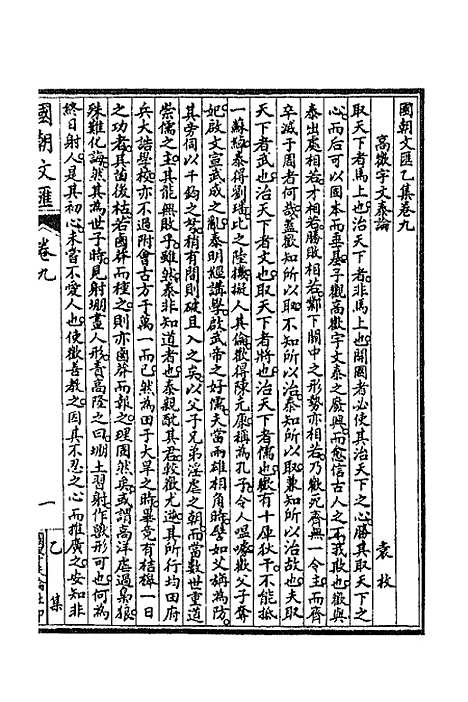 國朝文匯乙集卷九
高歡宇文泰論
袁枚
取天下者馬上也治天下者非馬上也開國者必使其治天下之心勝其取天下之
心而后可以固本而垂基予觀高歡宇文泰之廢興而愈信古人之不我欺也歡與
泰出處相若才相若勝敗相若鄴下關中之形勢亦相若乃歡死齊無一令主而齊
卒滅于周者何哉蓋歡知所以取不知所以治泰知所以取兼知所以治故也夫取
天下者武也治天下者文也取天下者將也治天下者儒也歡有十庫狄干不能抵
一蘇綽泰得劉璠比之陸機擬人其倫歡得陳元康稱為孔子令人嗢噱歡父子奪
妃啟文宣武成之亂泰明經講學啟武帝之好儒天當兩雄相角時譬如父稱為防
其旁伺以千鈞之弩稍有間則破且入之矣以父子兄弟淫虐之朝而當數世重道
崇儒之主其能無敗乎雖然泰非知道者也泰親酖其君較歡尤逆其所行均田府
兵大誥學校亦不過附會古方千萬一而已然為田于大旱之時畢竟有桔槔一日
之功者其苗後枯若鹵莽而種之則亦鹵莽而報之理固然矣或謂高洋虐過梟獍
殊難化誨然其為世子時見射堋畫人形責高隆之曰堋土習射作獸形可也何為
終日射人是其初心未嘗不愛人也使歡善教之因其不忍之心而推廣之安知非
國朝文匯
卷九
一
乙集